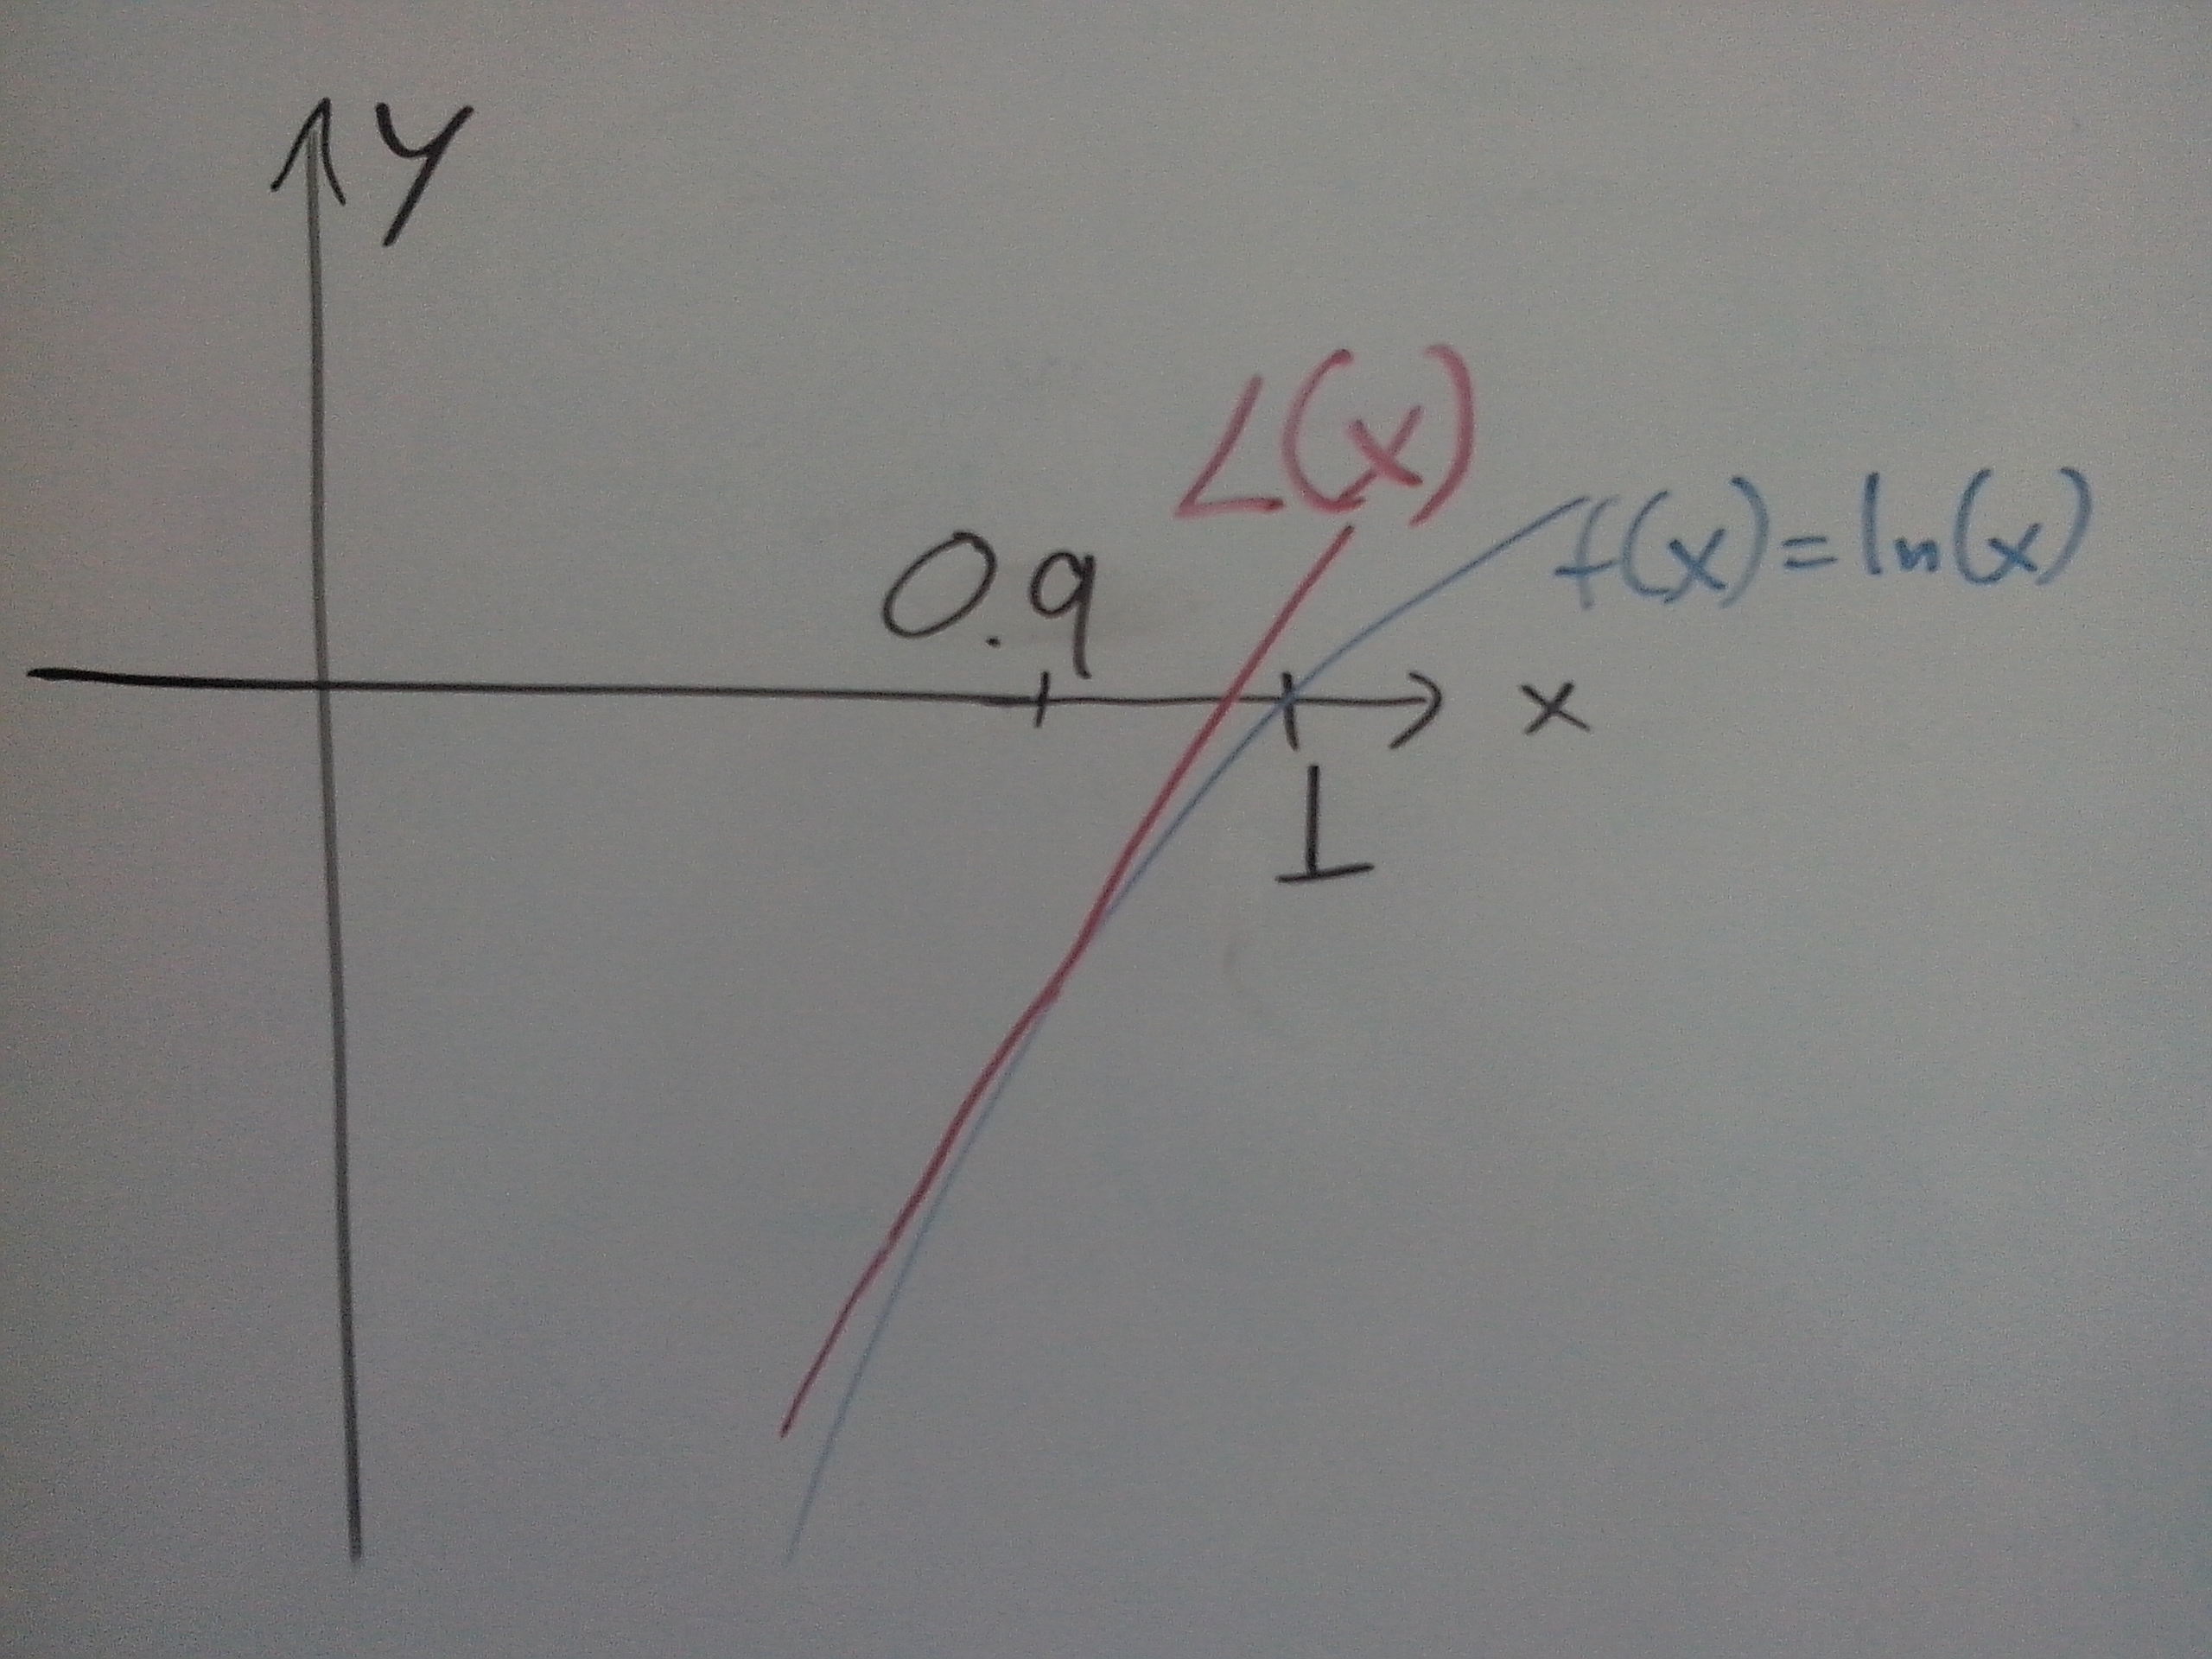 y
L(x)
f(x)=ln(x)
0.9
x
1